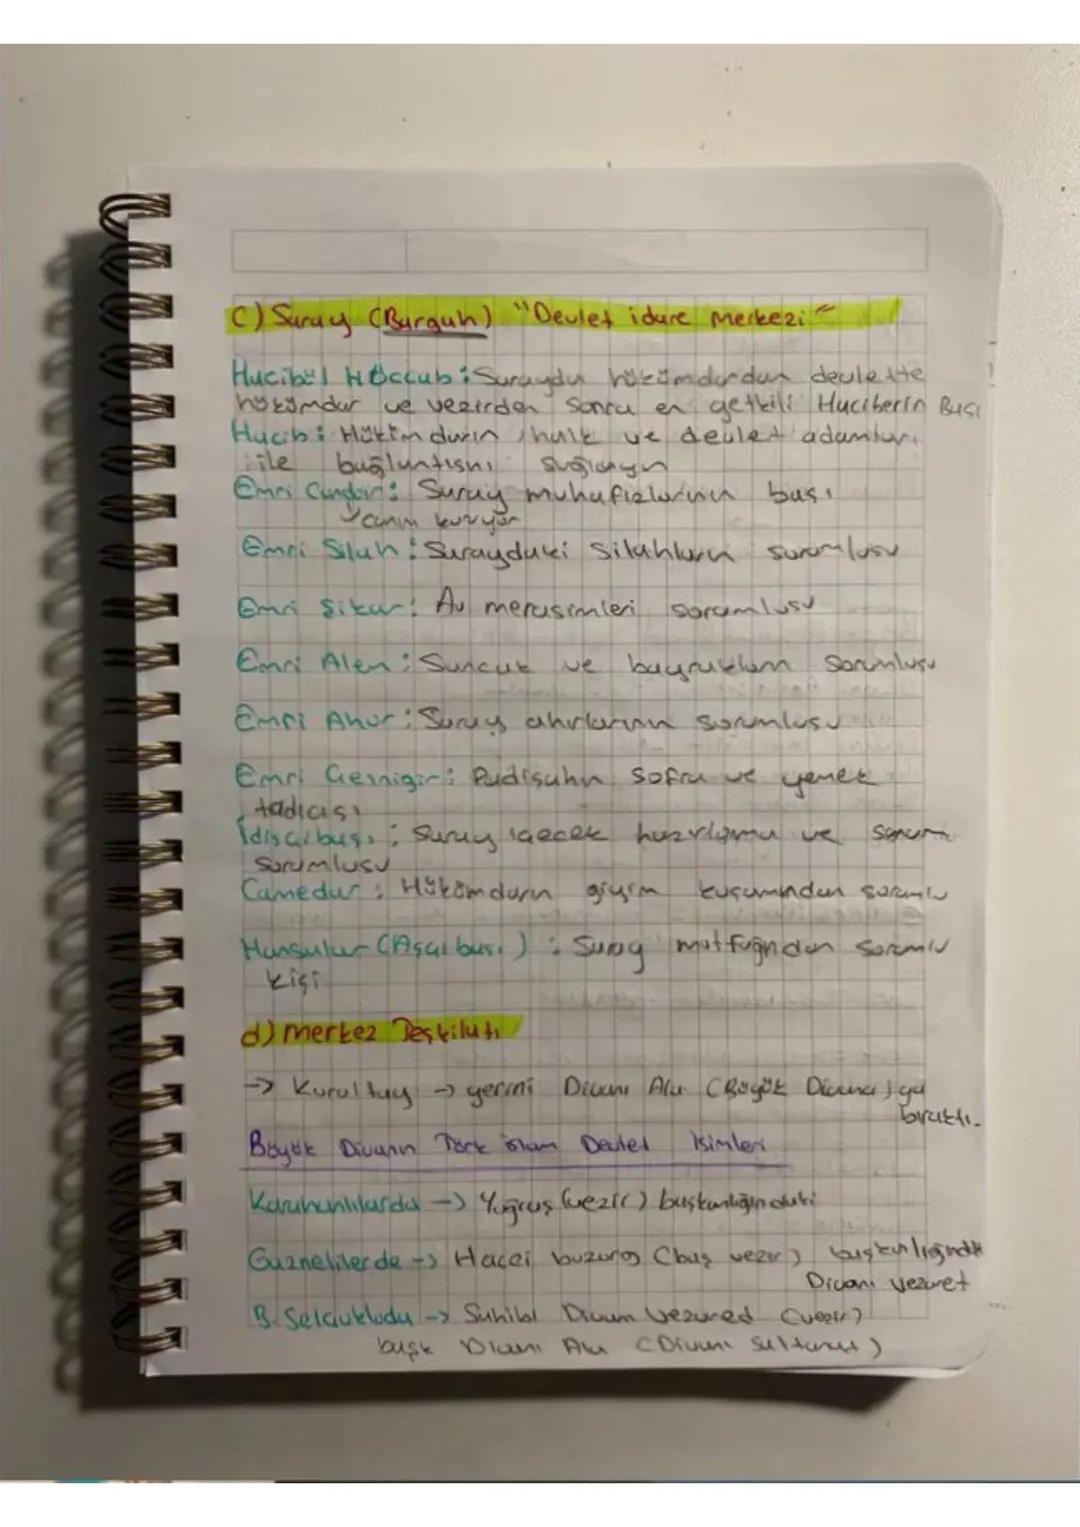 C) Saray (Bargah) "Devlet idare merkezi"
Hacibül Hüccab: Sarayda hükümdardan devlette
hükümdar ve vezirden sonra en yetkili Haciberin Başı
Hacib: Hükümdarın, halk ve devlet adamları
ile bağlantısını sağlayan
Emri Candar: Saray muhafızlarının başı
canını koruyor
Emri Silah: Saraydaki silahların sorumlusu
Emri Şikar: Av merasimleri sorumlusu
Emri Alem: Sancak ve bayrakların sorumlusu
Emri Ahur: Saray ahırlarının sorumlusu
Emri Çeşnigir: Padişahın sofra ve yemek
tadıcısı
İdişçibaşı: Saray içecek hazırlama ve sunum
sorumlusu
Camedar: Hükümdarın giyim kuşamından sorumlu
Hansalar (Aşçıbaşı): Saray mutfağından sorumlu
kişi
d) Merkez Teşkilatı
-> Kurultay -> yerini Divanı Ala (Büyük Divana) ya
bıraktı.
Büyük Divanın Türk islam Devlet İsimleri
Karahanlılarda -> Yuğruş (vezir) başkanlığındaki
Gaznelilerde -> Hacei buzurg (baş vezir) başkanlığında
Divanı vezaret
B. Selçukluda -> Sahibi Divanı Vezared (vezir)
başk Divanı Ala (Divanı Saltanat)